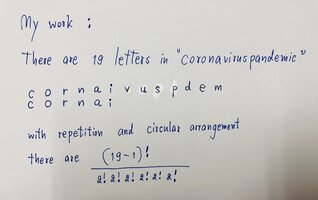 My work :
There are 19 letters in "coronaviruspandemic"
c o r n a i v u s p d e m
c o r n a i
with repetition and circular arrangement
there are (19-1)!
2! 2! 2! 2! 2! 2!